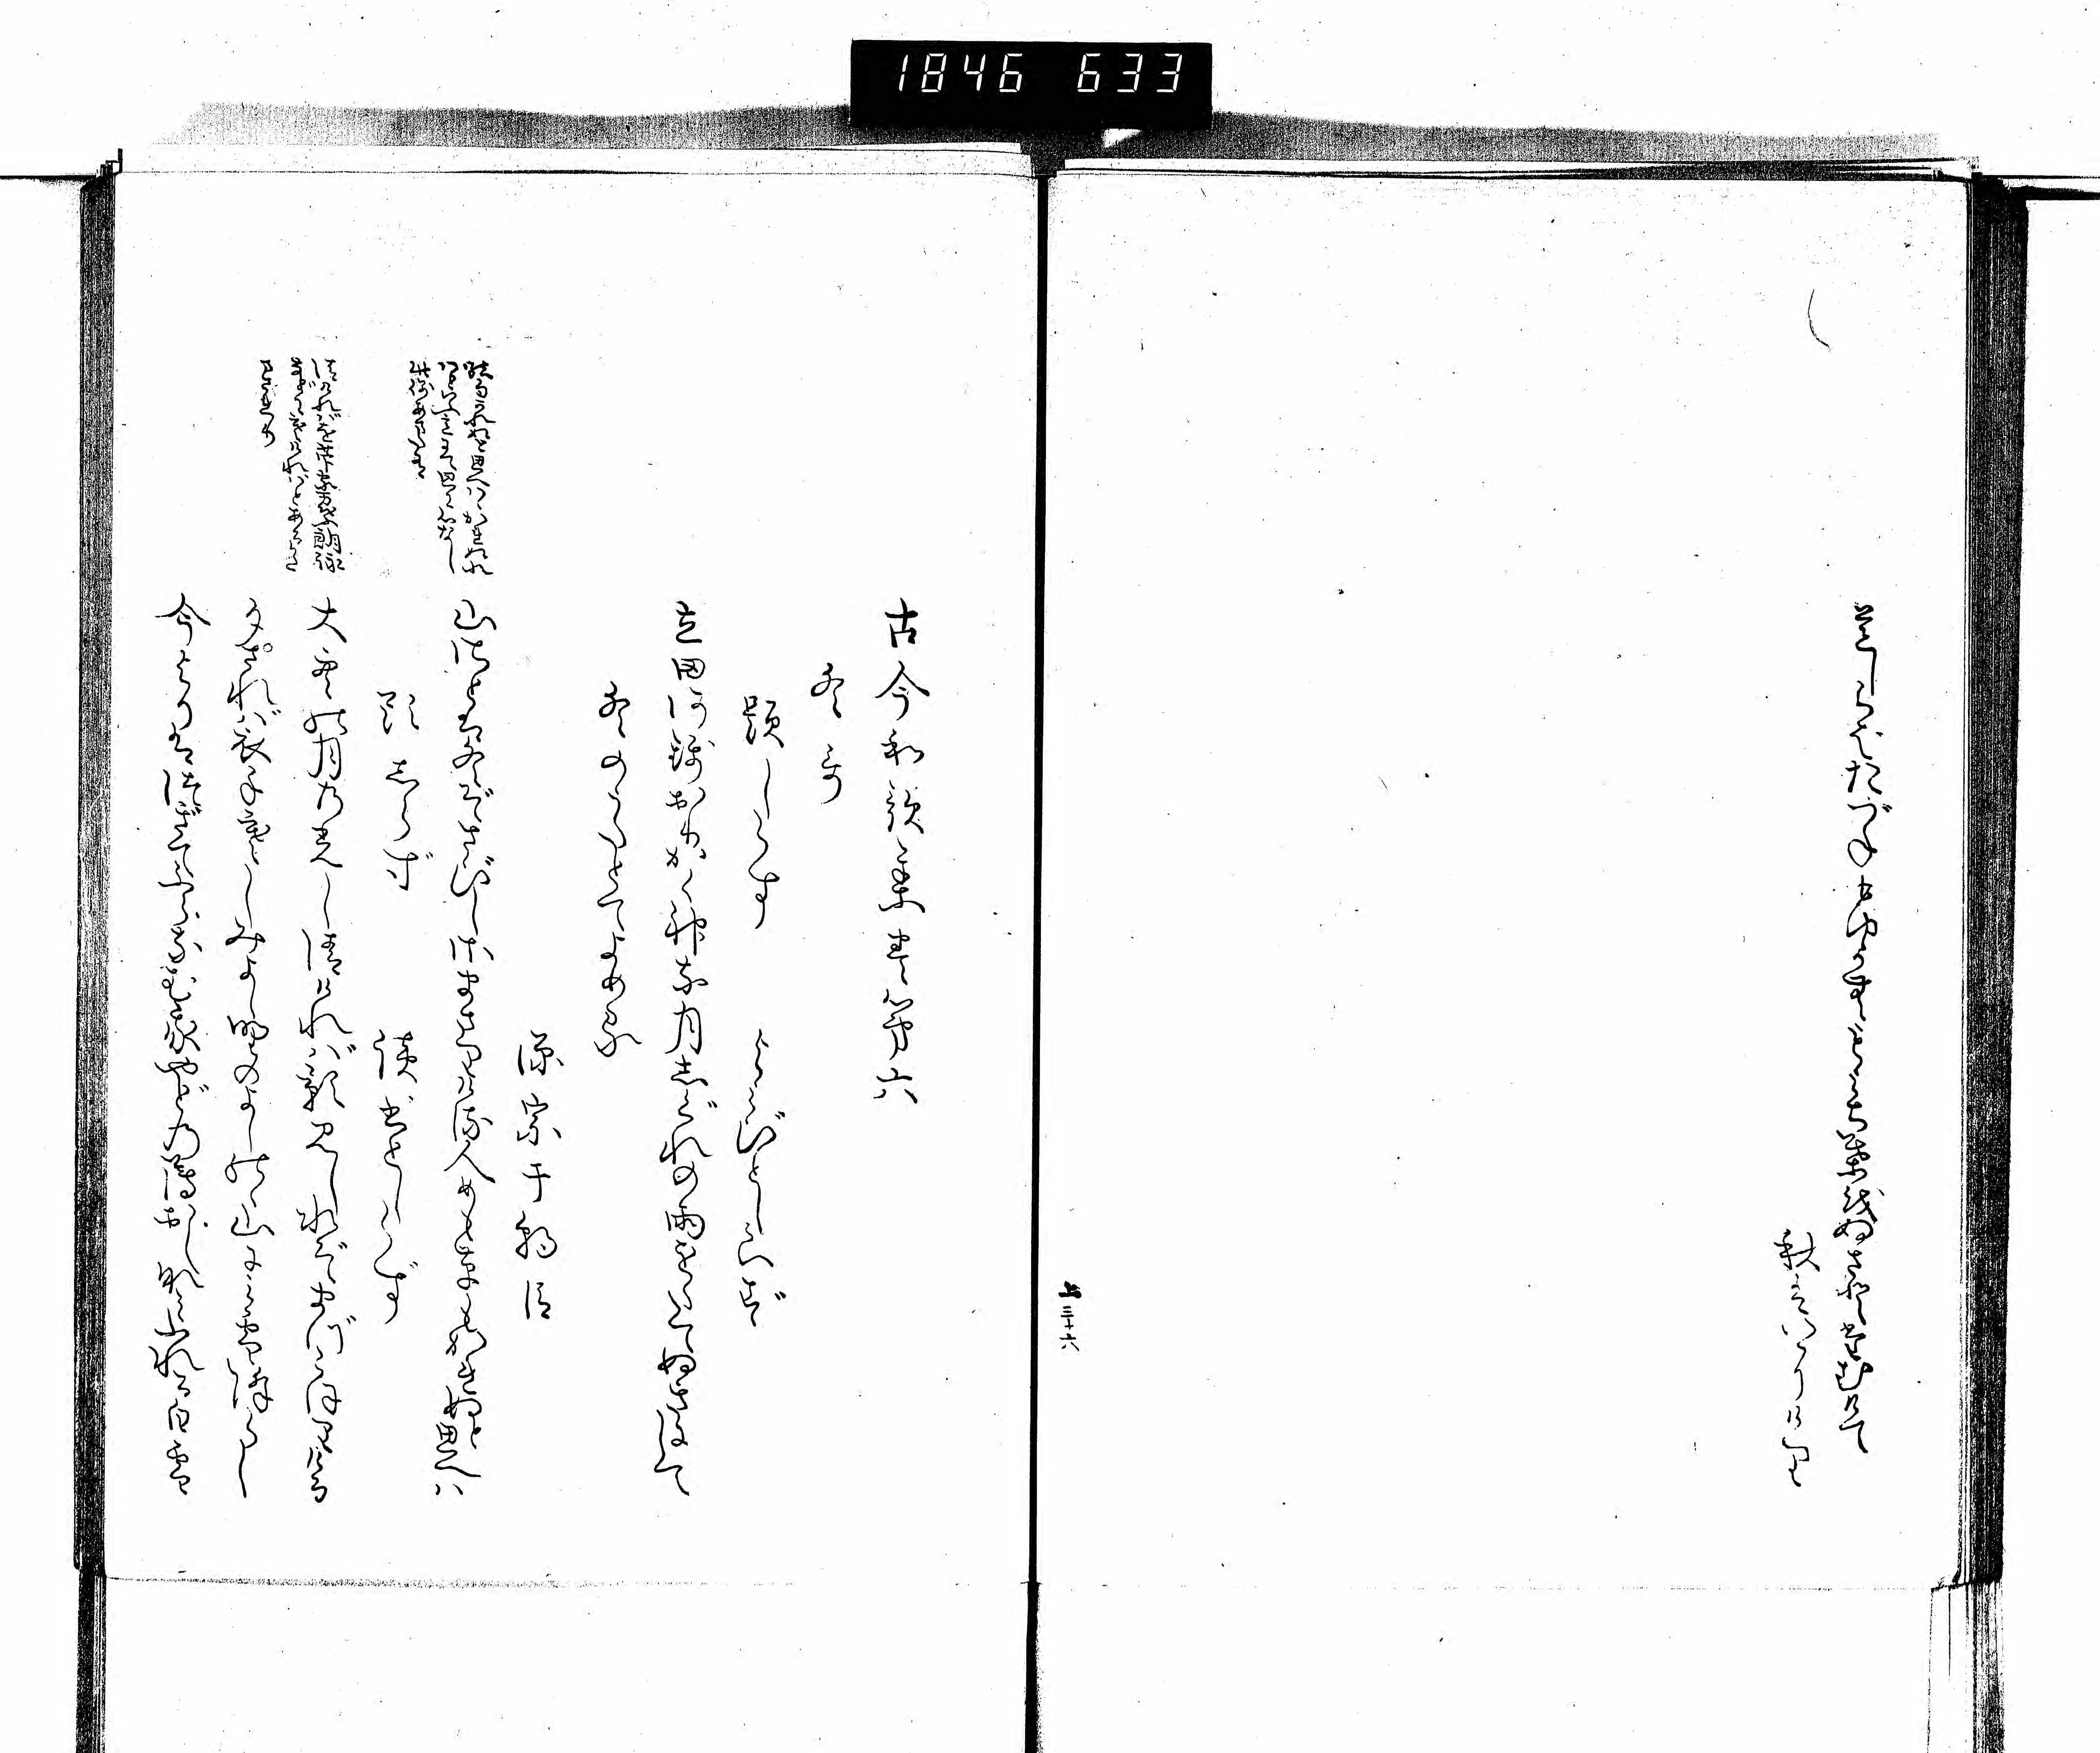 1846 633
道しらばたづねもゆかむもみぢ葉をぬさとたむけて
秋はいにけり
上三十六
古今和歌集巻第六
冬哥
題しらず　よみびとしらず
立田河錦おりかく神な月しぐれの雨をたてぬきにして
冬のうたとてよめる
源宗于朝臣
山里は冬ぞさびしさまさりける人めも草もかれぬと思へば
題しらず　読人しらず
大空の月の光し清ければ影見し水ぞまづこほりける
夕されば衣手寒しみよし野のよしの山にみ雪降らし
今よりはつぎてふらなむ我やどの薄おしなみふれる白雪